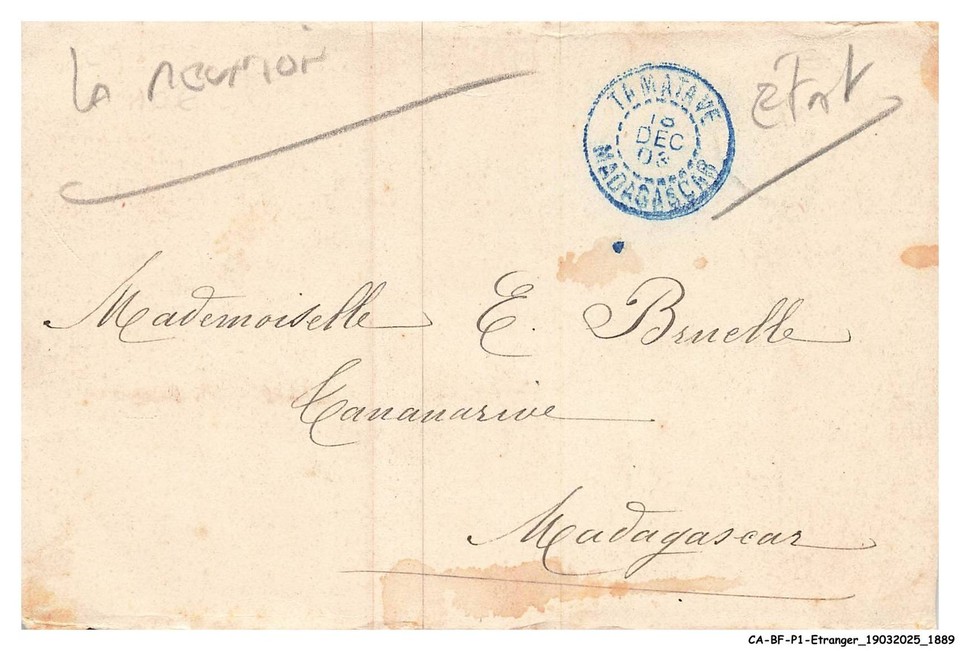 La Reunion
TAMATAVE
18
DEC
03
MADAGASCAR
Mademoiselle E. Bruelle
Tananarive
Madagascar
CA-BF-P1-Etranger_19032025_1889